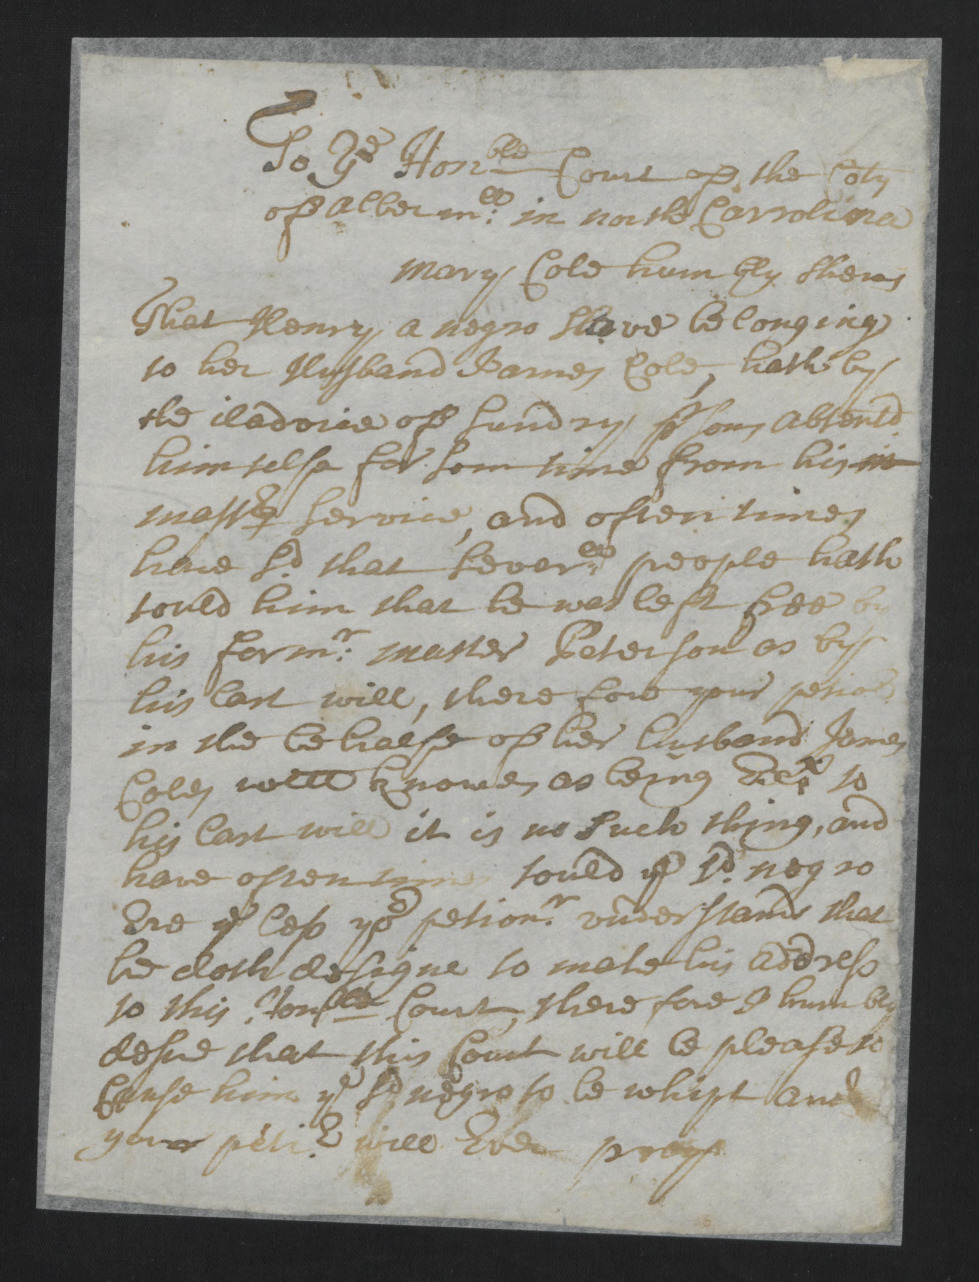 To Ye Honble Court of the Coty
of Albermll: in north Carrolina
Mary Cole humbly Shews
That Henry a negro Slave belonging
to her Husband James Cole, hath by
the iladvice of Sundry psons absentd
himselfe for som time from his
masters Service, and often times
have Sd that Severll people hath
tould him that he was left free by
his formr: master Peterson as by
his last will, there fore your petionr
in the behalfe of her husband James
Coles well knowes as being Exr to
his last will it is no Such thing, and
have often times tould ye sd negro
Ere ye less yor petionr understands that
he doth designe to make his address
to this Honble Court, there fore I humbly
desire that this Court will be please to
Cause him ye Sd negro to be whipt and
your petir will Ever pray